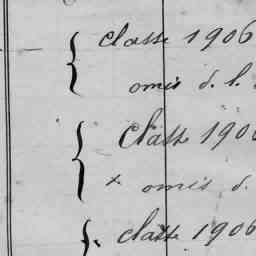 { classe 1906
omis d. l.
{ classe 1906
x omis d.
{ classe 1906